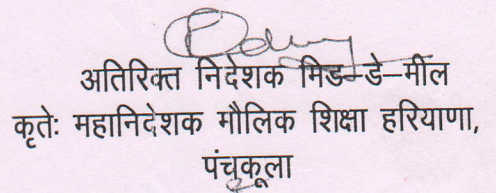 अतिरिक्त निदेशक मिड–डे–मील
कृतेः महानिदेशक मौलिक शिक्षा हरियाणा,
पंचकूला